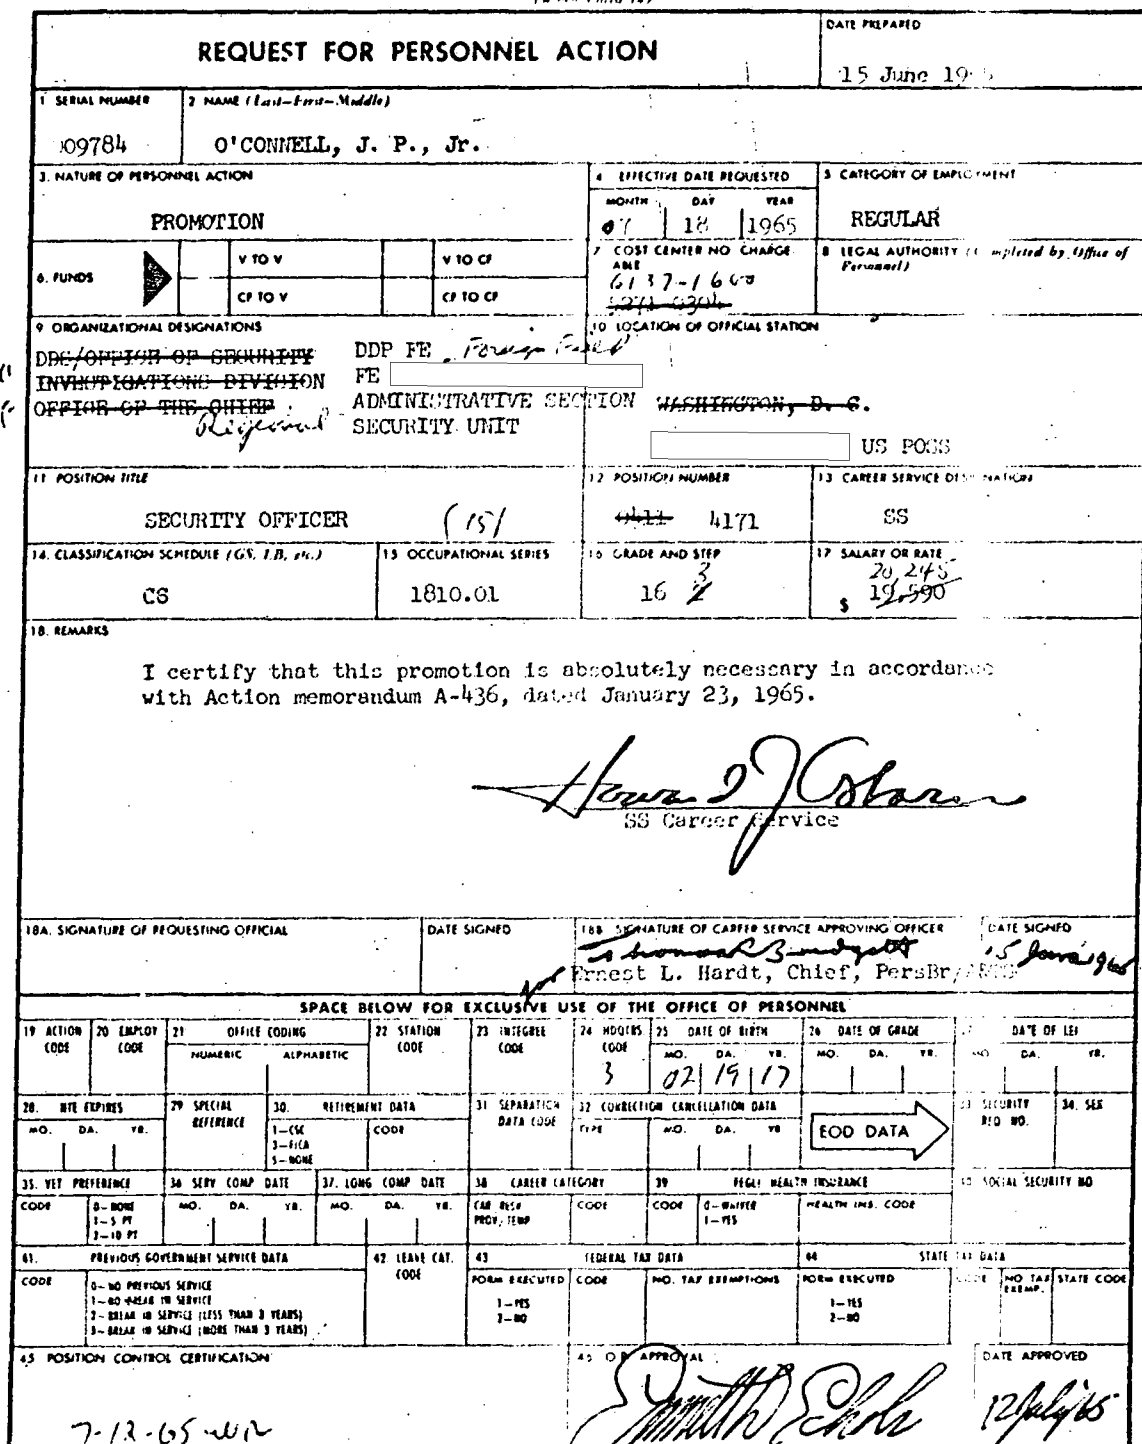 REQUEST FOR PERSONNEL ACTION
DATE PREPARED
15 June 19
1 SERIAL NUMBER
09784
2 NAME (Last—First—Middle)
O'CONNELL, J. P., Jr.
3. NATURE OF PERSONNEL ACTION
PROMOTION
4 EFFECTIVE DATE REQUESTED
MONTH DAY YEAR
07 18 1965
5 CATEGORY OF EMPLOYMENT
REGULAR
6. FUNDS
V TO V
V TO CF
CF TO V
CF TO CF
7 COST CENTER NO CHARGE-
ABLE
6137-1600
5271-0304
8 LEGAL AUTHORITY (Completed by Office of
Personnel)
9 ORGANIZATIONAL DESIGNATIONS
DDS/OFFICE OF SECURITY
INVESTIGATIONS DIVISION
OFFICE OF THE CHIEF
Regional
DDP FE Foreign Field
FE
ADMINISTRATIVE SECTION
SECURITY UNIT
10 LOCATION OF OFFICIAL STATION
WASHINGTON, D. C.
US POSS
11 POSITION TITLE
SECURITY OFFICER (15)
12 POSITION NUMBER
0411 4171
13 CAREER SERVICE DESIGNATION
SS
14. CLASSIFICATION SCHEDULE (GS, LB, etc.)
CS
15 OCCUPATIONAL SERIES
1810.01
16 GRADE AND STEP
3
16 2
17 SALARY OR RATE
20,245
$ 19,590
18. REMARKS
I certify that this promotion is absolutely necessary in accordance
with Action memorandum A-436, dated January 23, 1965.
Howard J Osborn
SS Career Service
18A. SIGNATURE OF REQUESTING OFFICIAL
DATE SIGNED
18B SIGNATURE OF CAREER SERVICE APPROVING OFFICER
DATE SIGNED
15 June 1965
for Ernest L. Hardt, Chief, PersBr/
SPACE BELOW FOR EXCLUSIVE USE OF THE OFFICE OF PERSONNEL
19 ACTION
CODE
20 EMPLOY
CODE
21 OFFICE CODING
NUMERIC ALPHABETIC
22 STATION
CODE
23 INTEGREE
CODE
24 HDQTRS
CODE
3
25 DATE OF BIRTH
MO. DA. YR.
02 19 17
26 DATE OF GRADE
MO. DA. YR.
DATE OF LEI
MO DA. YR.
28. NTE EXPIRES
MO. DA. YR.
29 SPECIAL
REFERENCE
30. RETIREMENT DATA
1—CSC
3—FICA
5—NONE
CODE
31 SEPARATION
DATA CODE
32 CORRECTION CANCELLATION DATA
TYPE MO. DA. YR
EOD DATA
33 SECURITY
REQ NO.
34. SEX
35. VET PREFERENCE
CODE
0—NONE
1—5 PT
2—10 PT
36 SERV COMP DATE
MO. DA. YR.
37. LONG COMP DATE
MO. DA. YR.
38 CAREER CATEGORY
CAR RESV
PROV/TEMP
CODE
39 FEGLI HEALTH INSURANCE
CODE
0—WAIVER
1—YES
HEALTH INS. CODE
40 SOCIAL SECURITY NO
41. PREVIOUS GOVERNMENT SERVICE DATA
CODE
0—NO PREVIOUS SERVICE
1—NO BREAK IN SERVICE
2—BREAK IN SERVICE (LESS THAN 3 YEARS)
3—BREAK IN SERVICE (MORE THAN 3 YEARS)
42 LEAVE CAT.
CODE
43 FEDERAL TAX DATA
FORM EXECUTED CODE NO. TAX EXEMPTIONS
1—YES
2—NO
44 STATE TAX DATA
FORM EXECUTED
1—YES
2—NO
CODE NO TAX STATE CODE
EXEMP.
45 POSITION CONTROL CERTIFICATION
46 O P APPROVAL
DATE APPROVED
12 July 65